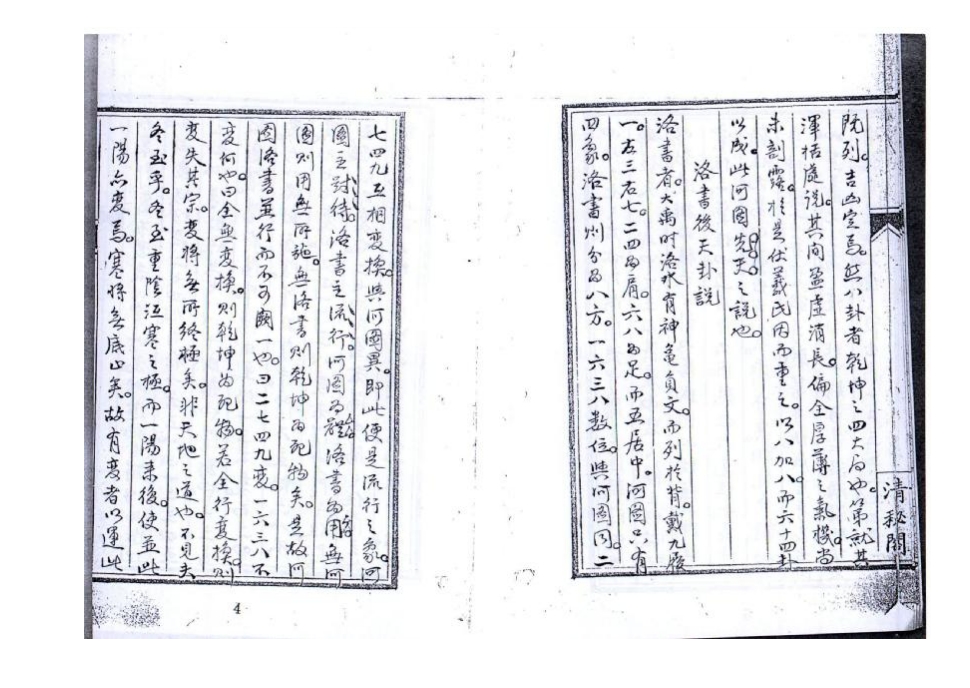 既列。吉凶定焉。然八卦者乾坤之四大局也。第就其
渾栝處說。其间盈虛消長。偏全厚薄之氣機。尚
未剖露。於是伏羲氏因而重之。以八加八而六十四卦
以成。此河圖先天之說也。
洛書後天卦説
洛書者。大禹时洛水有神龜負文。而列於背。戴九履
一。左三右七。二四為肩。六八為足。而五居中。河圖只有
四象。洛書則分為八方。一六三八数位。與河圖同。二
清秘閣
七四九互相变换。與河圖異。即此便是流行之象。河
圖主对待。洛書主流行。河圖为體。洛書為用。無河
圖則用無所施。無洛書则乾坤为死物矣。是故河
图洛書並行而不可闕一也。曰二七四九变。一六三八不
变何也。曰全無变换。则乾坤为死物。若全行变换。則
变失其宗。变将無所终極矣。非天地之道也。不見夫
冬至乎。冬至重陰沍寒之極。而一陽来復。使並此
一陽亦变焉。寒将無底止矣。故有变者以運此
4